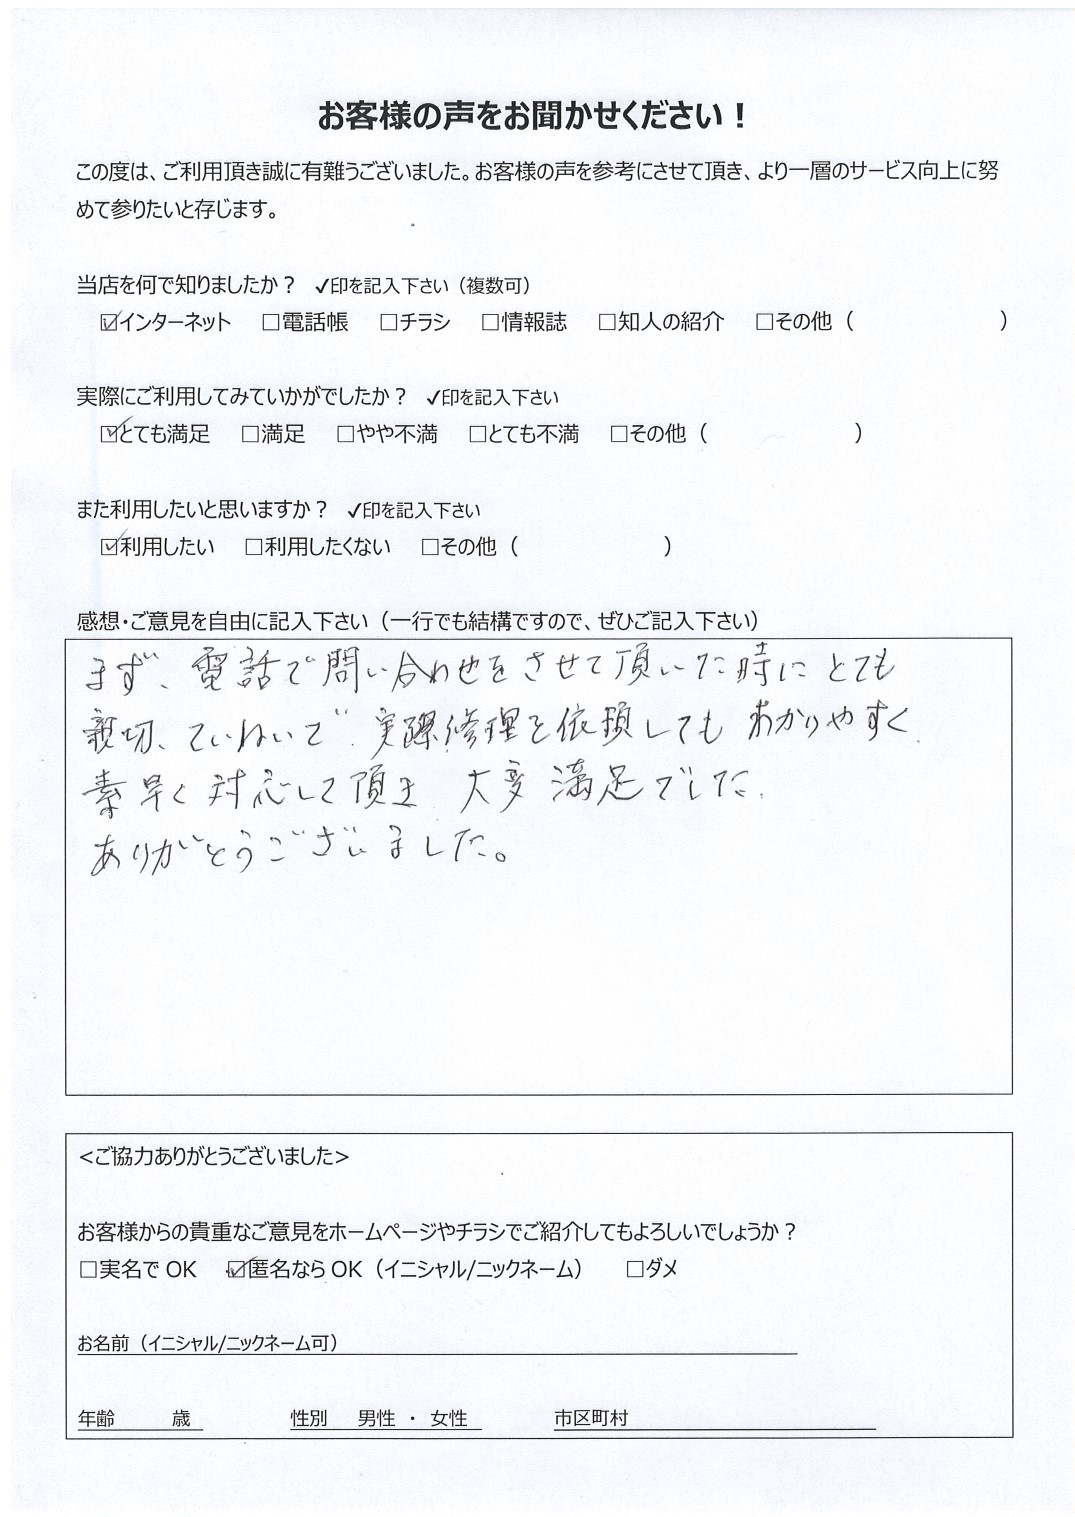 お客様の声をお聞かせください！
この度は、ご利用頂き誠に有難うございました。お客様の声を参考にさせて頂き、より一層のサービス向上に努
めて参りたいと存じます。
当店を何で知りましたか？ ✓印を記入下さい（複数可）
☑インターネット □電話帳 □チラシ □情報誌 □知人の紹介 □その他（ ）
実際にご利用してみていかがでしたか？ ✓印を記入下さい
☑とても満足 □満足 □やや不満 □とても不満 □その他（ ）
また利用したいと思いますか？ ✓印を記入下さい
☑利用したい □利用したくない □その他（ ）
感想・ご意見を自由に記入下さい（一行でも結構ですので、ぜひご記入下さい）
まず、電話で問い合わせをさせて頂いた時にとても
親切、ていねいで、実際修理を依頼してもわかりやすく
素早く対応して頂き 大変満足でした。
ありがとうございました。
<ご協力ありがとうございました>
お客様からの貴重なご意見をホームページやチラシでご紹介してもよろしいでしょうか？
□実名で OK ☑匿名なら OK（イニシャル/ニックネーム） □ダメ
お名前（イニシャル/ニックネーム可）
年齢 歳 性別 男性 ・ 女性 市区町村